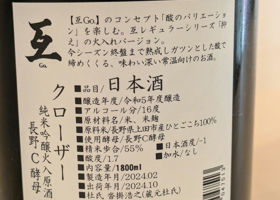 互
Go.
【互Go.】のコンセプト「酸のバリエーション」を楽しむ。互レギュラーシリーズ「抑え」の火入れバージョン。
今シーズン終盤まで熟成しガツンとした酸で締めくくる、味わい深い常温向けのお酒。
クローザー
純米吟醸火入原酒
長野C酵母
■品目/日本酒
■醸造年度/令和5年度醸造
■アルコール分/16度
■原材料名/米、米麹
■原料米/長野県上田市産ひとごこち100%
■使用酵母/長野C酵母
■精米歩合/55% ■日本酒度/-1
■酸度/1.7 ■加水/なし
■内容量/1800ml
■製造年月/2024.02
■出荷年月/2024.10
■杜氏/沓掛浩之(蔵元杜氏)